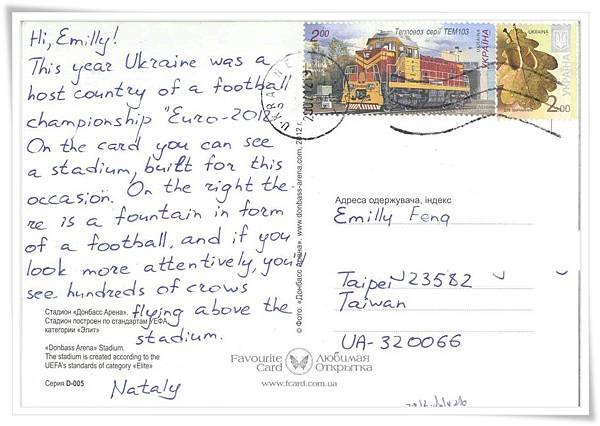 Hi, Emilly!
This year Ukraine was a
host country of a football
championship "Euro-2012"
On the card you can see
a stadium, built for this
occasion. On the right the-
re is a fountain in form
of a football, and if you
look more attentively, you'll
see hundreds of crows
flying above the
stadium.
Nataly
Стадион «Донбасс Арена».
Стадион построен по стандартам УЕФА
категории «Элит»
«Donbass Arena» Stadium.
The stadium is created according to the
UEFA's standards of category «Elite»
Серия D-005
© Фото: «Донбасс Арена». www.donbass-arena.com, 2012 г.
Favourite Card
Любимая Открытка
www.fcard.com.ua
2.00
Тепловоз серії ТЕМ103
УКРАЇНА
UKRAINE
2.00
УКРАЇНА
Адреса одержувача, індекс
Emilly Feng
Taipei 23582
Taiwan
UA-320066